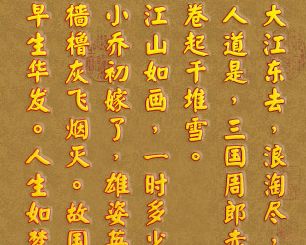 大江东去，浪淘尽，
人道是，三国周郎赤
卷起千堆雪。
江山如画，一时多少
小乔初嫁了，雄姿英
樯橹灰飞烟灭。故国
早生华发。人生如梦